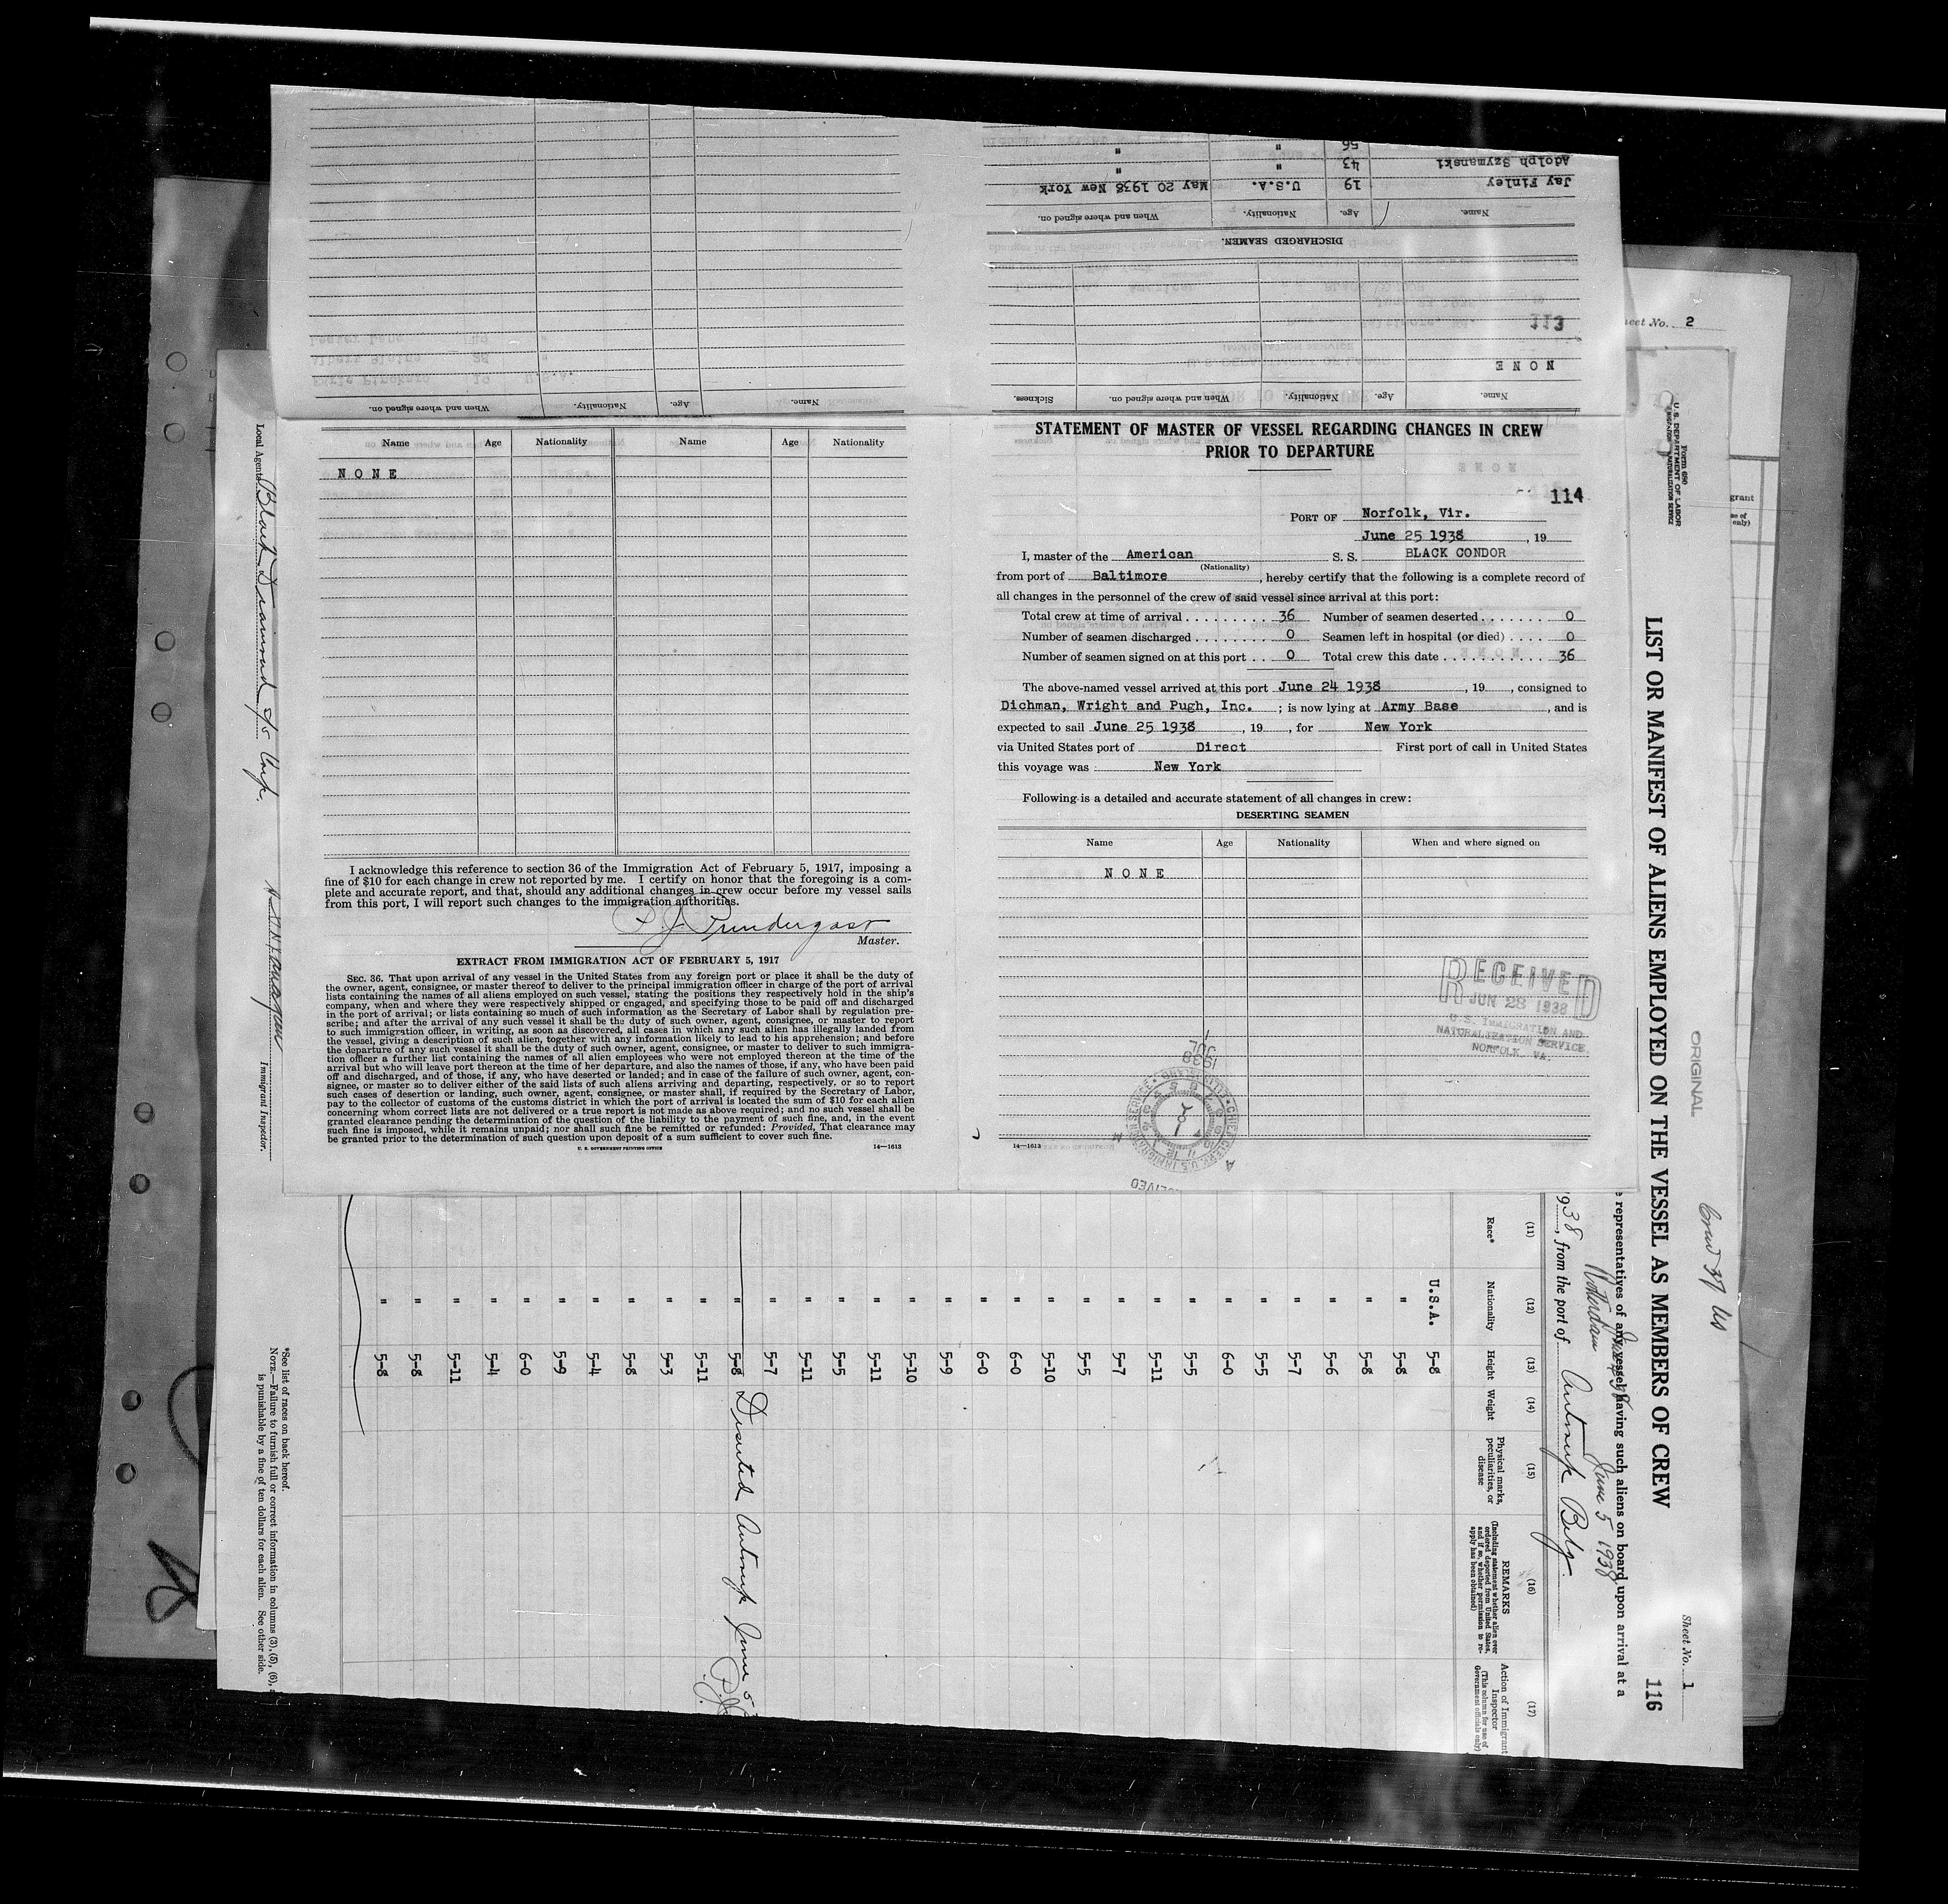 Jay Finley 19 U.S.A. May 20 1938 New York
Adolph Szymanski 43 " "
56 " "
Name. Age. Nationality. When and where signed on.
DISCHARGED SEAMEN.
113
NONE
Name. Age. Nationality. When and where signed on. Sickness.
Name. Age. Nationality. When and where signed on.
Name Age Nationality Name Age Nationality
NONE
I acknowledge this reference to section 36 of the Immigration Act of February 5, 1917, imposing a
fine of $10 for each change in crew not reported by me. I certify on honor that the foregoing is a com-
plete and accurate report, and that, should any additional changes in crew occur before my vessel sails
from this port, I will report such changes to the immigration authorities.
P. J. Prendergast
Master.
EXTRACT FROM IMMIGRATION ACT OF FEBRUARY 5, 1917
SEC. 36. That upon arrival of any vessel in the United States from any foreign port or place it shall be the duty of
the owner, agent, consignee, or master thereof to deliver to the principal immigration officer in charge of the port of arrival
lists containing the names of all aliens employed on such vessel, stating the positions they respectively hold in the ship's
company, when and where they were respectively shipped or engaged, and specifying those to be paid off and discharged
in the port of arrival; or lists containing so much of such information as the Secretary of Labor shall by regulation pre-
scribe; and after the arrival of any such vessel it shall be the duty of such owner, agent, consignee, or master to report
to such immigration officer, in writing, as soon as discovered, all cases in which any such alien has illegally landed from
the vessel, giving a description of such alien, together with any information likely to lead to his apprehension; and before
the departure of any such vessel it shall be the duty of such owner, agent, consignee, or master to deliver to such immigra-
tion officer a further list containing the names of all alien employees who were not employed thereon at the time of the
arrival but who will leave port thereon at the time of her departure, and also the names of those, if any, who have been paid
off and discharged, and of those, if any, who have deserted or landed; and in case of the failure of such owner, agent, con-
signee, or master so to deliver either of the said lists of such aliens arriving and departing, respectively, or so to report
such cases of desertion or landing, such owner, agent, consignee, or master shall, if required by the Secretary of Labor,
pay to the collector of customs of the customs district in which the port of arrival is located the sum of $10 for each alien
concerning whom correct lists are not delivered or a true report is not made as above required; and no such vessel shall be
granted clearance pending the determination of the question of the liability to the payment of such fine, and, in the event
such fine is imposed, while it remains unpaid; nor shall such fine be remitted or refunded: Provided, That clearance may
be granted prior to the determination of such question upon deposit of a sum sufficient to cover such fine.
U. S. GOVERNMENT PRINTING OFFICE 14—1613
STATEMENT OF MASTER OF VESSEL REGARDING CHANGES IN CREW
PRIOR TO DEPARTURE
114
PORT OF Norfolk, Vir.
June 25 1938, 19
I, master of the American S. S. BLACK CONDOR
(Nationality)
from port of Baltimore, hereby certify that the following is a complete record of
all changes in the personnel of the crew of said vessel since arrival at this port:
Total crew at time of arrival 36 Number of seamen deserted 0
Number of seamen discharged 0 Seamen left in hospital (or died) 0
Number of seamen signed on at this port 0 Total crew this date 36
The above-named vessel arrived at this port June 24 1938, 19, consigned to
Dichman, Wright and Pugh, Inc.; is now lying at Army Base, and is
expected to sail June 25 1938, 19, for New York
via United States port of Direct First port of call in United States
this voyage was New York
Following is a detailed and accurate statement of all changes in crew:
DESERTING SEAMEN
Name Age Nationality When and where signed on
NONE
RECEIVED
JUN 28 1938
U.S. IMMIGRATION AND
NATURALIZATION SERVICE
NORFOLK, VA.
1938
JUL
14—1613
Sheet No. 2
Form 680
U. S. DEPARTMENT OF LABOR
IMMIGRATION AND NATURALIZATION SERVICE
ORIGINAL
Sheet No. 1
116
LIST OR MANIFEST OF ALIENS EMPLOYED ON THE VESSEL AS MEMBERS OF CREW
representatives of any vessel having such aliens on board upon arrival at a
Rotterdam June 5 1938
938, from the port of Antwerp Belg.
(11) (12) (13) (14) (15) (16) (17)
Race* Nationality Height Weight Physical marks, peculiarities, or disease
REMARKS
(Including statement whether alien ever ordered deported from United States, and if so, whether permission to reapply has been obtained)
Action of Immigrant Inspector
(This column for use of Government officials only)
U.S.A. 5-8
" 5-8
" 5-8
" 5-6
" 5-7
" 5-5
" 6-0
" 5-5
" 5-11
" 5-7
" 5-5
" 5-10
" 6-0
" 6-0
" 5-9
" 5-10
" 5-11
" 5-5
" 5-11
" 5-7
" 5-8 Deserted Antwerp June 5
" 5-11
" 5-3
" 5-8
" 5-4
" 5-9
" 6-0
" 5-4
" 5-11
" 5-8
" 5-8
*See list of races on back hereof.
NOTE.—Failure to furnish full or correct information in columns (3), (5), (6),
is punishable by a fine of ten dollars for each alien. See other side.
Local Agents Black Diamond S/S Corp.
Immigrant Inspector.